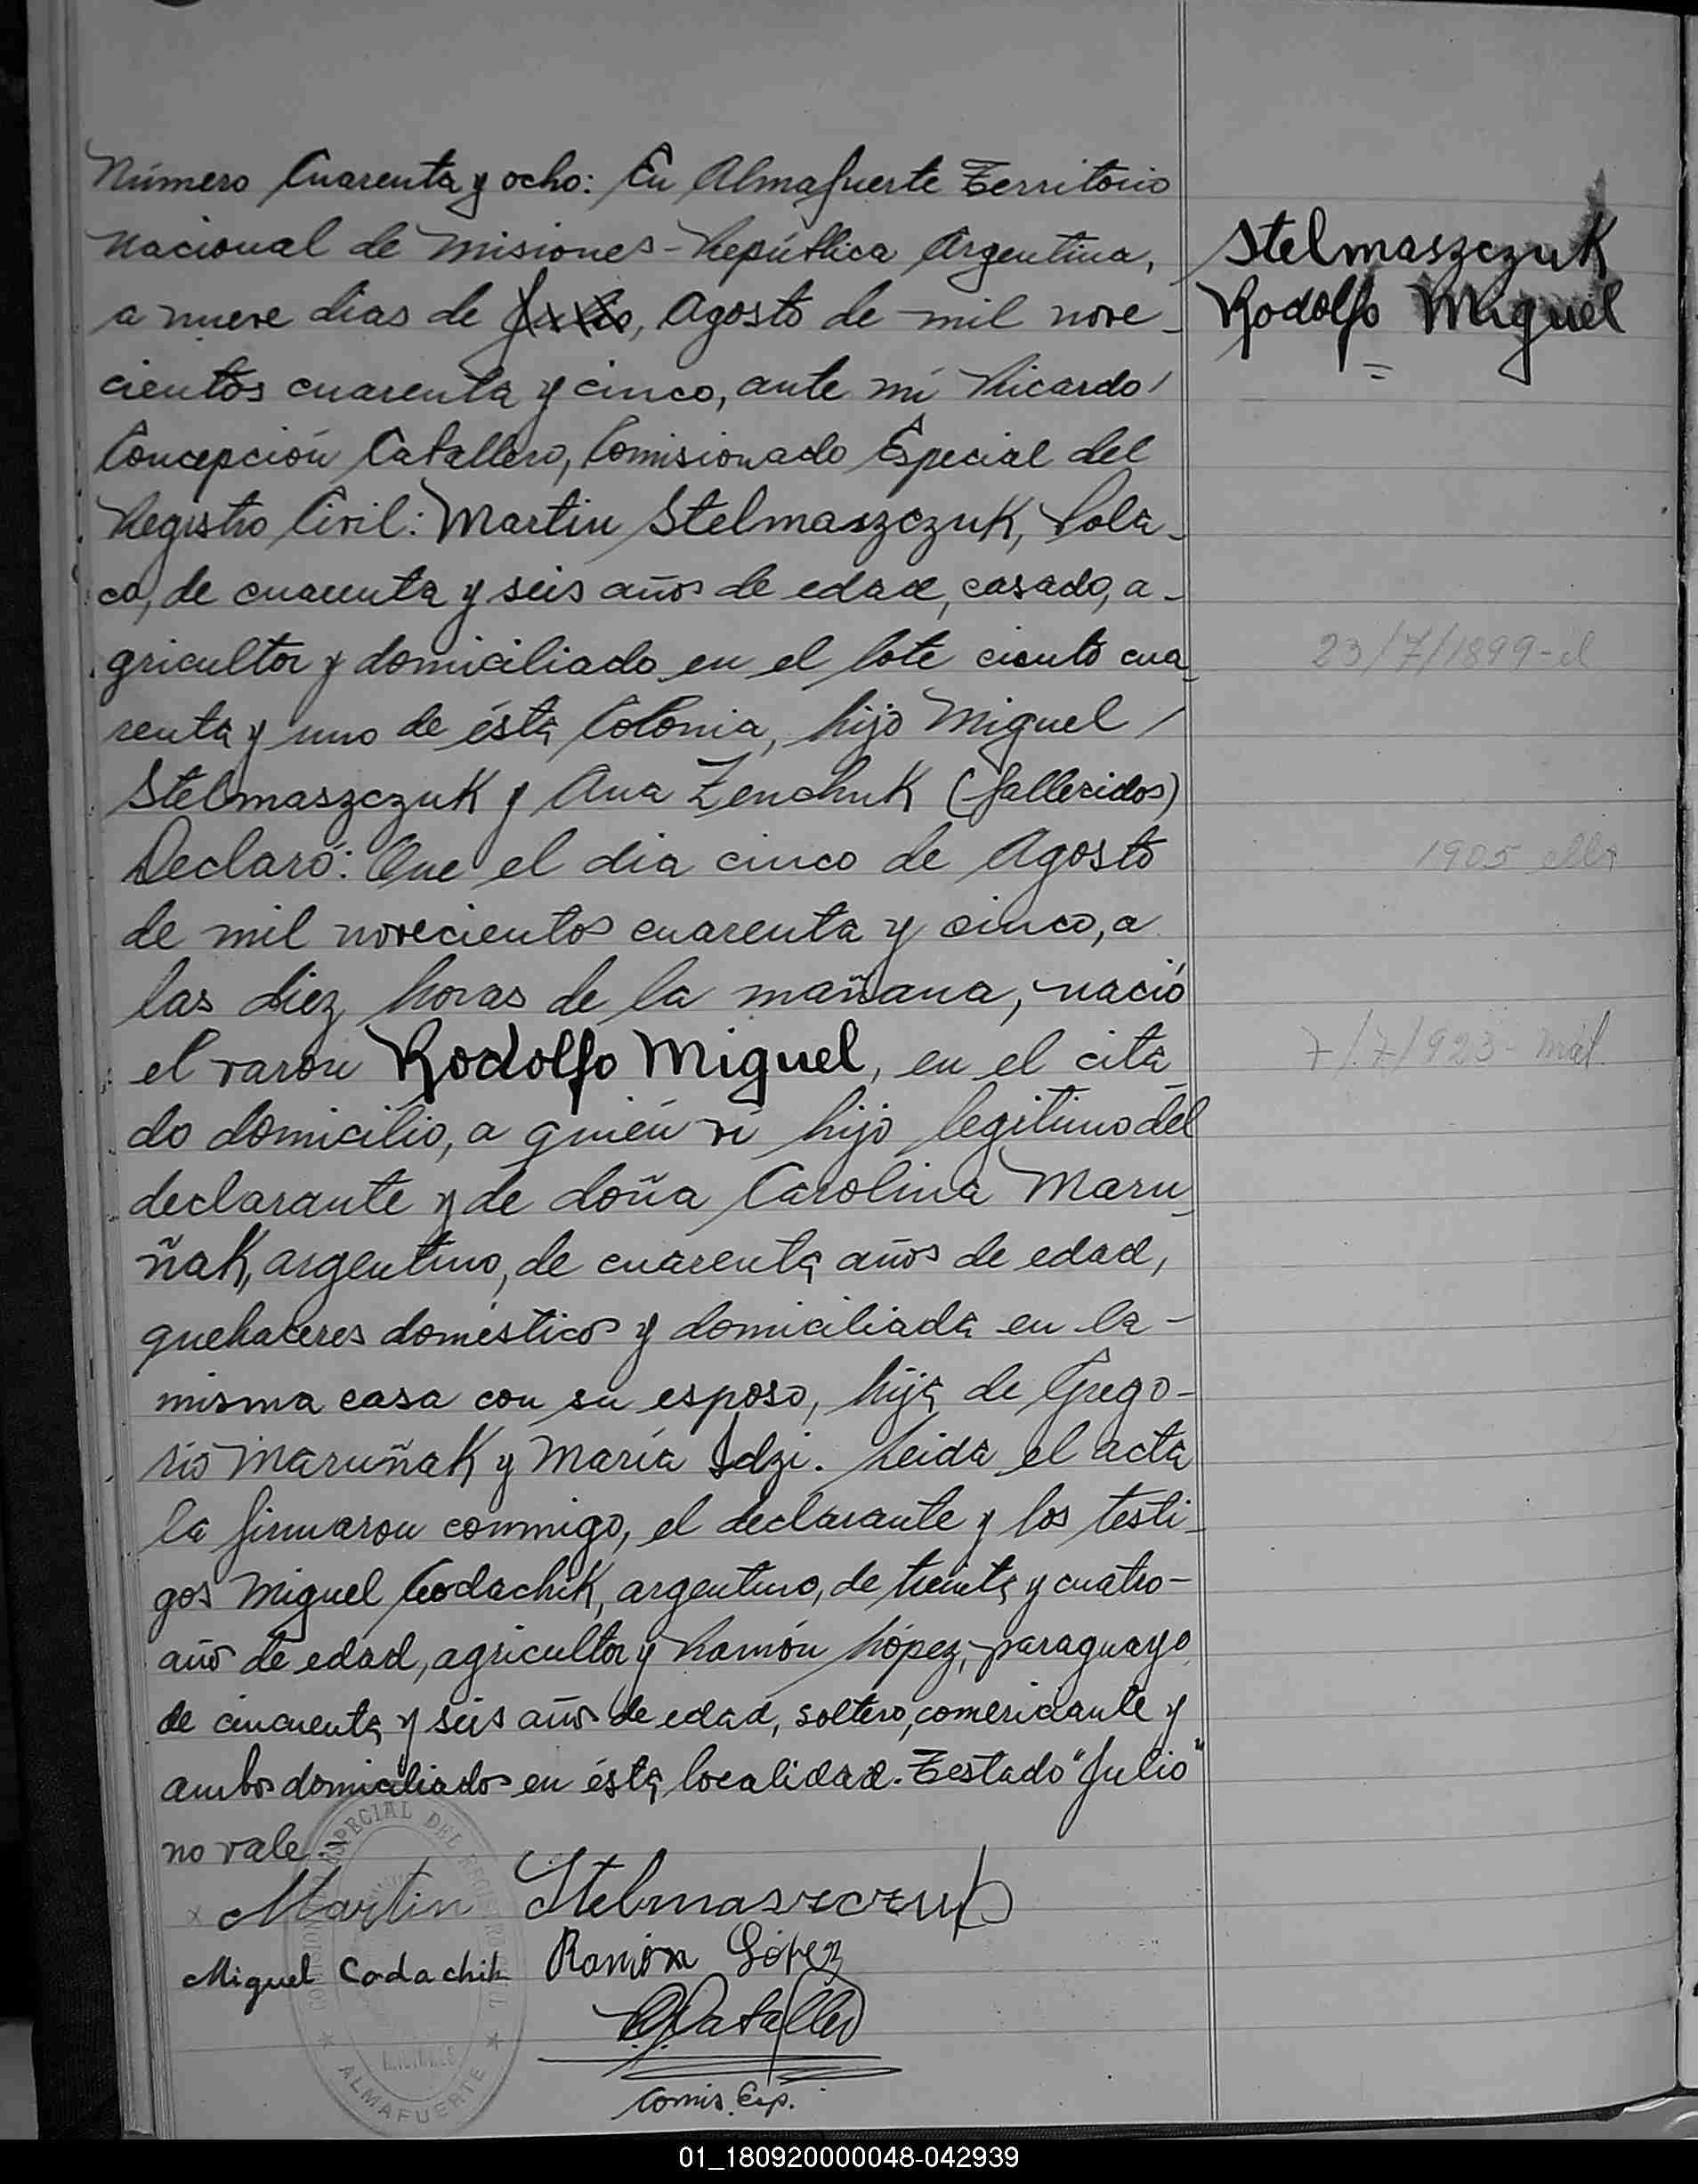 Número Cuarenta y ocho: En Almafuerte Territorio
Nacional de Misiones - República Argentina,
a nueve dias de Julio, Agosto de mil nove-
cientos cuarenta y cinco, ante mí Ricardo
Concepción Caballero, Comisionado Especial del
Registro Civil: Martin Stelmaszczuk, Pola-
co, de cuarenta y seis años de edad, casado, a-
gricultor y domiciliado en el lote ciento cua-
renta y uno de ésta Colonia, hijo Miguel
Stelmaszczuk y Ana Zenchuk (fallecidos)
Declaró: Que el dia cinco de Agosto
de mil novecientos cuarenta y cinco, a
las diez horas de la mañana, nació
el varón Rodolfo Miguel, en el cita-
do domicilio, a quién vi hijo legitimo del
declarante y de doña Carolina Maru-
ñak, argentino, de cuarenta años de edad,
quehaceres domésticos y domiciliada en la -
misma casa con su esposo, hija de Grego-
rio Maruñak y María Idzi. Leida el acta
la firmaron conmigo, el declarante y los testi-
gos Miguel Codachik, argentino, de treinta y cuatro -
años de edad, agricultor y Ramón López, paraguayo
de cincuenta y seis años de edad, soltero, comerciante y
ambos domiciliados en ésta localidad. Testado "Julio"
no vale.
Stelmaszczuk
Rodolfo Miguel
23/7/1899 - el
1905 ella
7/7/923 - mat.
x Martin Stelmaszczuk
Miguel Codachik Ramón López
Caballero
Comis. Esp.
COMISIONADO ESPECIAL DEL REGISTRO CIVIL
ALMAFUERTE
01_180920000048-042939